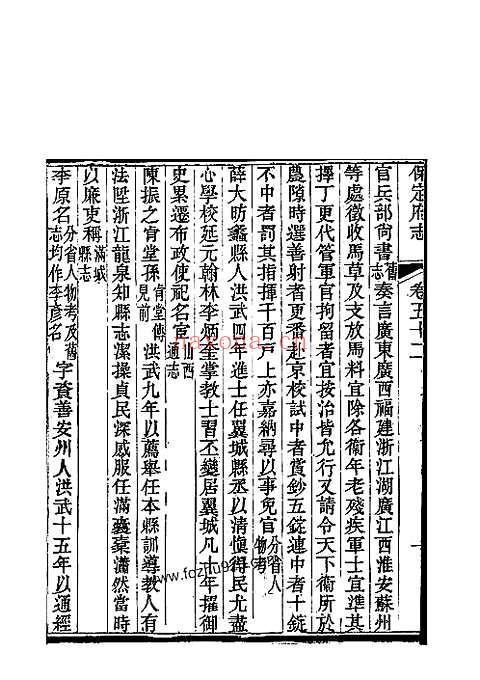 保定府志 卷五十二
官兵部尙書舊志奏言廣東廣西福建浙江湖廣江西淮安蘇州
等處徵收馬草及支放馬料宜除各衞年老殘疾軍士宜準其
擇丁更代管軍官拘留者宜按治皆允行又請令天下衞所於
農隙時選善射者更番赴京校試中者賞鈔五錠連中者十錠
不中者罰其指揮千百戶上亦嘉納尋以事免官分省人物考
薛大昉蠡縣人洪武四年進士任翼城縣丞以清愼得民尤盡
心學校延元翰林李炳奎掌教士習丕變居翼城凡十年擢御
史累遷布政使祀名宦山西通志
陳振之肯堂孫肯堂傳見前洪武九年以薦舉任本縣訓導教人有
法陞浙江龍泉知縣志潔操貞民深感服任滿囊橐瀟然當時
以廉吏稱滿城縣志
李原名分省人物考及舊志均作李彥名字資善安州人洪武十五年以通經
www.foczhu98.com
nayona.cn